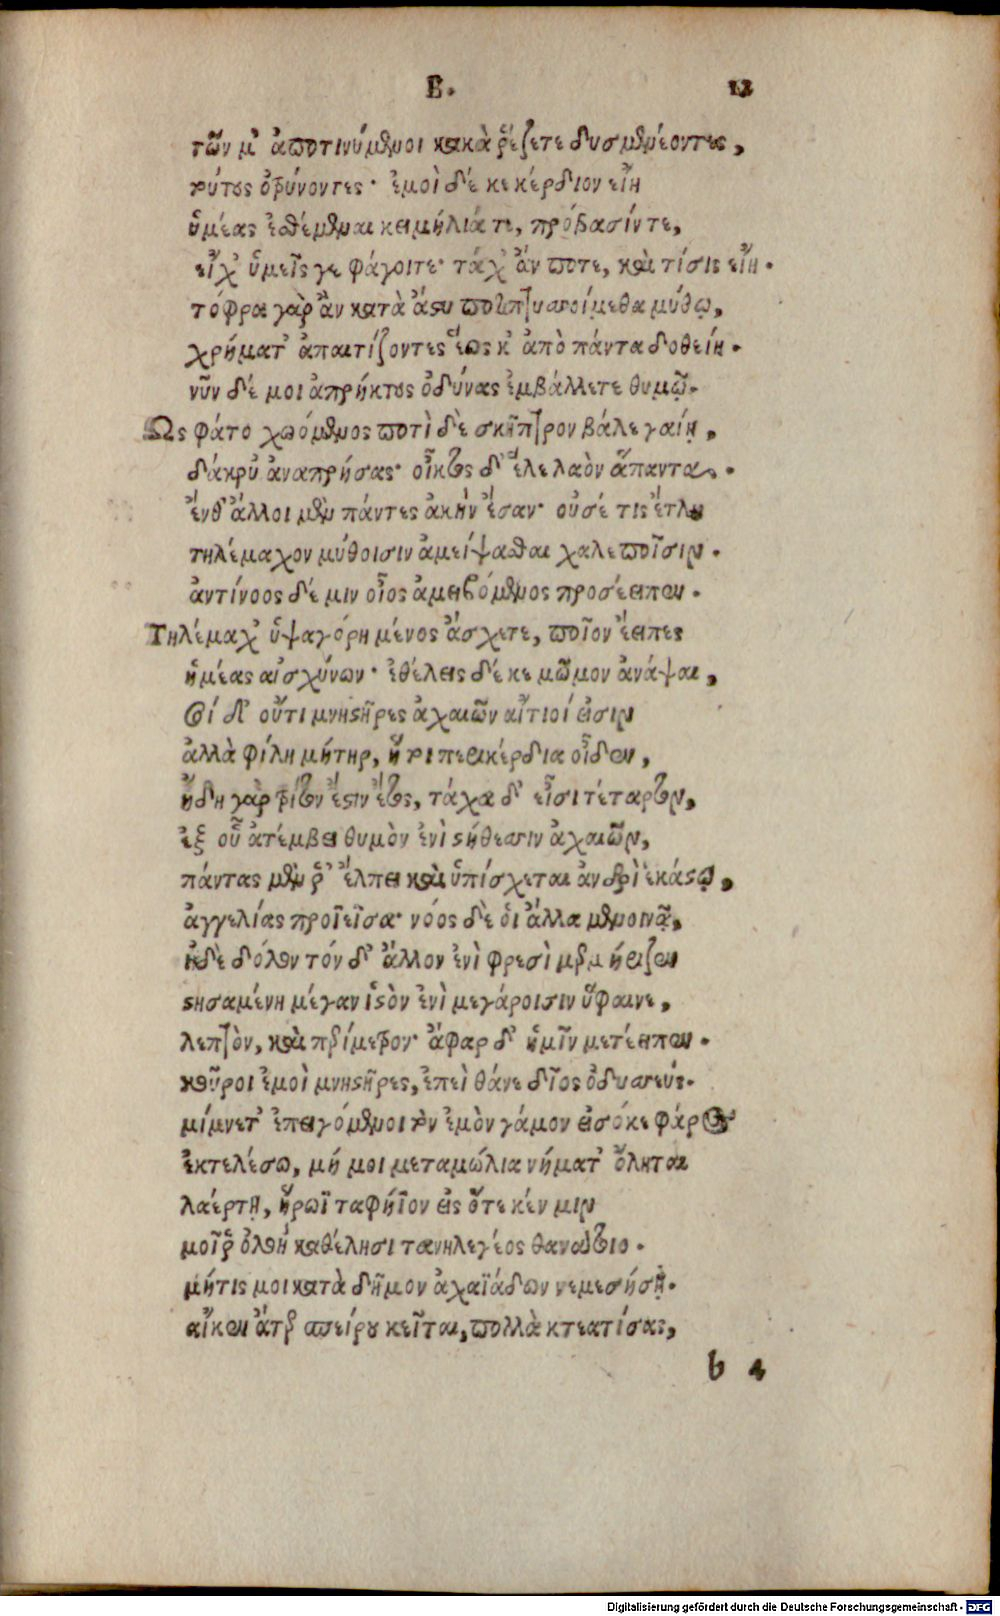 Β. 12
τῶν μ' ἀποτινύμενοι κακὰ ῥέζετε δυσμενέοντες,
τούτους ὀτρύνοντες· ἐμοὶ δέ κε κέρδιον εἴη
ὑμέας ἐσθέμεναι κειμήλιά τε, πρόβασίν τε,
εἴχ' ὑμεῖς γε φάγοιτε· τάχ' ἄν ποτε, καὶ τίσις εἴη.
τόφρα γὰρ ἂν κατὰ ἄστυ ποτιπτυσσοίμεθα μύθῳ,
χρήματ' ἀπαιτίζοντες ἕως κ' ἀπὸ πάντα δοθείη.
νῦν δέ μοι ἀπρήκτους ὀδύνας ἐμβάλλετε θυμῷ.
Ὣς φάτο χωόμενος ποτὶ δὲ σκῆπτρον βάλε γαίῃ,
δάκρυ' ἀναπρήσας· οἶκτος δ' ἕλε λαὸν ἅπαντα.
ἔνθ' ἄλλοι μὲν πάντες ἀκὴν ἔσαν· οὐδέ τις ἔτλη
τηλέμαχον μύθοισιν ἀμείψασθαι χαλεποῖσιν.
ἀντίνοος δέ μιν οἶος ἀμειβόμενος προσέειπεν.
Τηλέμαχ' ὑψαγόρη μένος ἄσχετε, ποῖον ἔειπες
ἡμέας αἰσχύνων· ἐθέλεις δέ κε μῶμον ἀνάψαι,
Σοί δ' οὔτι μνηστῆρες ἀχαιῶν αἴτιοί εἰσιν
ἀλλὰ φίλη μήτηρ, ἥ τοι περικέρδια οἶδεν,
ἤδη γὰρ τρίτον ἔστιν ἔτος, τάχα δ' εἶσι τέταρτον,
ἐξ οὗ ἀτέμβει θυμὸν ἐνὶ στήθεσσιν ἀχαιῶν,
πάντας μέν ῥ' ἔλπει καὶ ὑπίσχεται ἀνδρὶ ἑκάστῳ,
ἀγγελίας προϊεῖσα· νόος δὲ οἱ ἄλλα μενοινᾷ,
ἡ δὲ δόλον τόν δ' ἄλλον ἐνὶ φρεσὶ μερμήριζεν
στησαμένη μέγαν ἱστὸν ἐνὶ μεγάροισιν ὕφαινε,
λεπτὸν, καὶ περίμετρον· ἄφαρ δ' ἡμῖν μετέειπεν.
κοῦροι ἐμοὶ μνηστῆρες, ἐπεὶ θάνε δῖος ὀδυσσεύς.
μίμνετ' ἐπειγόμενοι τὸν ἐμὸν γάμον εἰσόκε φᾶρος
ἐκτελέσω, μή μοι μεταμώλια νήματ' ὄληται
λαέρτῃ, ἥρωϊ ταφήϊον εἰς ὅτε κέν μιν
μοῖρ' ὀλοὴ καθέλησι τανηλεγέος θανάτοιο.
μήτις μοι κατὰ δῆμον ἀχαϊάδων νεμεσήσῃ.
αἴκεν ἄτερ σπείρου κεῖται, πολλὰ κτεατίσας,
b 4
Digitalisierung gefördert durch die Deutsche Forschungsgemeinschaft - DFG